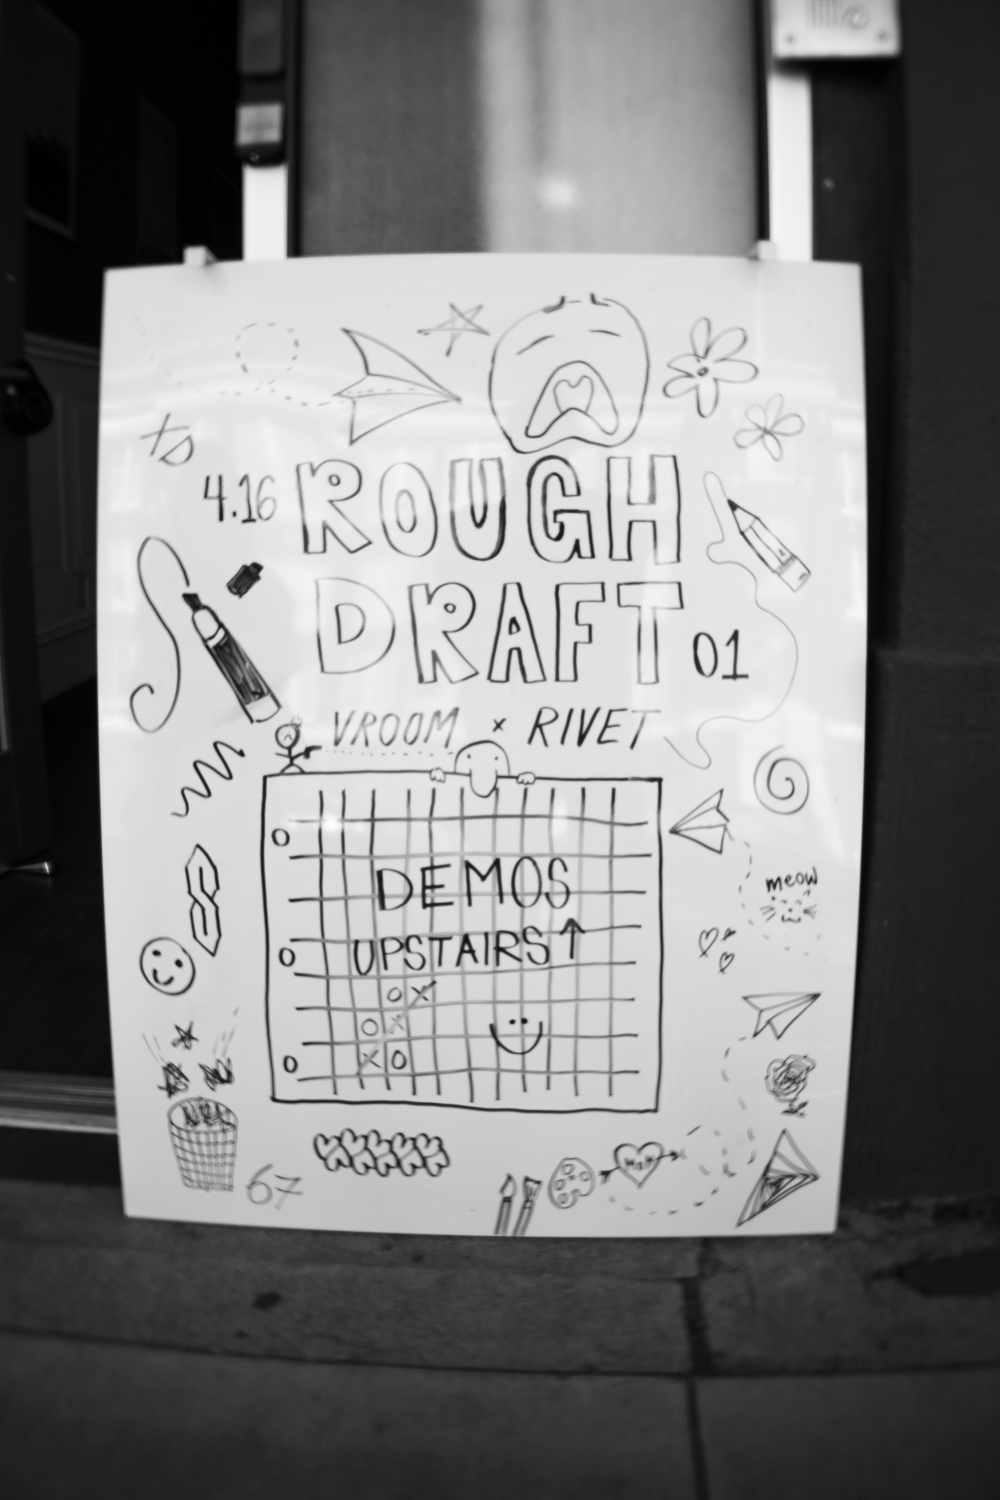 XD
4.16 ROUGH
DRAFT 01
VROOM x RIVET
DEMOS
UPSTAIRS ↑
O X
O X
X O
meow
67